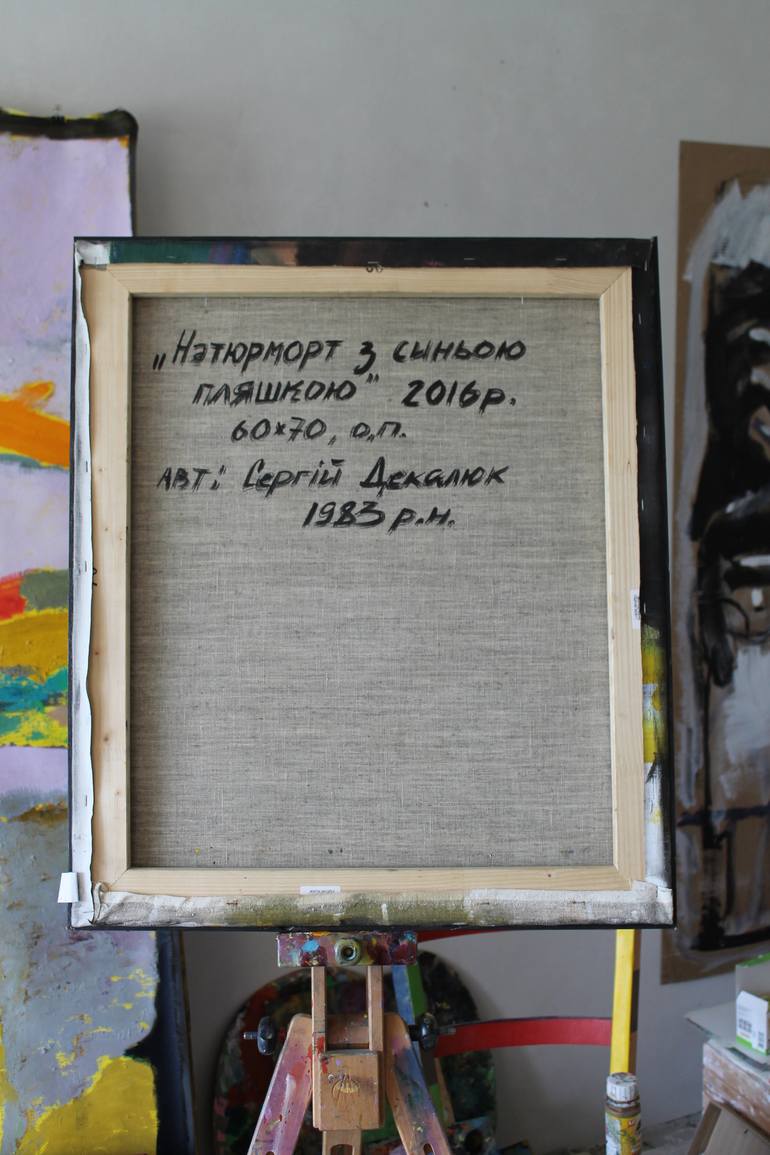 „Натюрморт з синьою
пляшкою" 2016р.
60×70, о,п.
АВТ: Сергій Декалюк
1983 р.н.